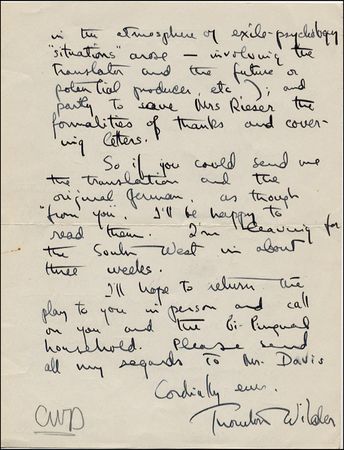 in the atmosphere of exile-psychology
"situations" arose — involving the
translator and the future or
potential producer, etc.); and
partly to save Mrs Rieser the
formalities of thanks and cover-
ing letters.
So if you could send me
the translation and the
original German, as though
"from you". I'll be happy to
read them. I'm leaving for
the South West in about
three weeks.
I'll hope to return the
play to you in person and call
on you and the bi-lingual
household. Please send
all my regards to Mr. Davis
Cordially ever.
Thornton Wilder
CWD